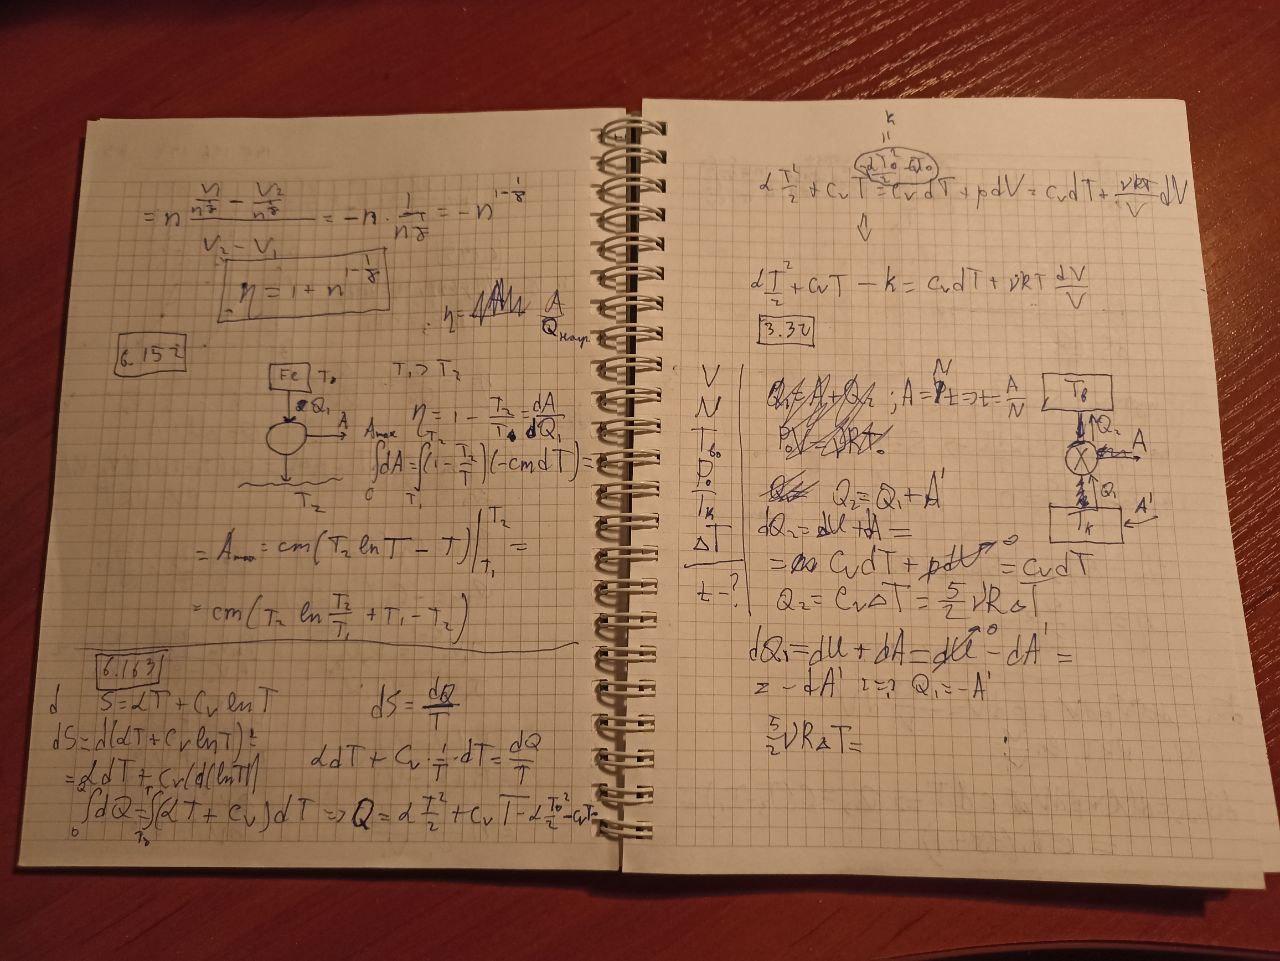 = n (V₁/n^(1/γ) − V₂/n^(1/γ))/(V₂ − V₁) = −n · 1/n^(1/γ) = −n^(1−1/γ)
η = 1 + n^(1−1/γ)
η = A/Q
6.152
Fe T₀
T₁ > T₂
Q₁
A
T₂
η = 1 − T₂/T₁ = dA/dQ₁
A max
∫dA = ∫(1 − T₂/T)(−cmdT) =
= A = cm(T₂ ln T − T)|T₂ T₁ =
= cm(T₂ ln T₂/T₁ + T₁ − T₂)
6.163
d S = αT + Cv ln T
dS = dQ/T
dS = d(αT + Cv ln T) =
= αdT + Cv(d(ln T))
αdT + Cv · 1/T · dT = dQ/T
∫dQ = ∫(αT + Cv)dT => Q = α T²/2 + CvT − α T₀²/2 − CvT₀
k
=
α T²/2 + CvT = CvdT + pdV = CvdT + νRT/V dV
⇓
α T²/2 + CvT − k = CvdT + νRT dV/V
3.32
V
N
Tв₀
P₀
Tк
ΔT
t − ?
; A = Nt => t = A/N
Q₂ = Q₁ + A'
dQ₂ = dU + dA =
= CvdT + pdV → 0 = CvdT
Q₂ = CvΔT = 5/2 νRΔT
dQ₁ = dU + dA = dU → 0 − dA' =
= − dA' => Q₁ = −A'
5/2 νRΔT =
Tв
Q₂
A
X
Q₁
Tк
A'